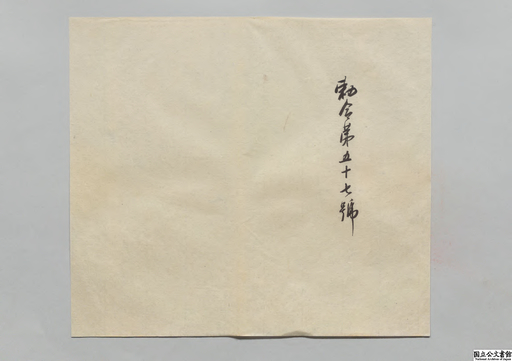 勅令第五十七號
国立公文書館
National Archives of Japan